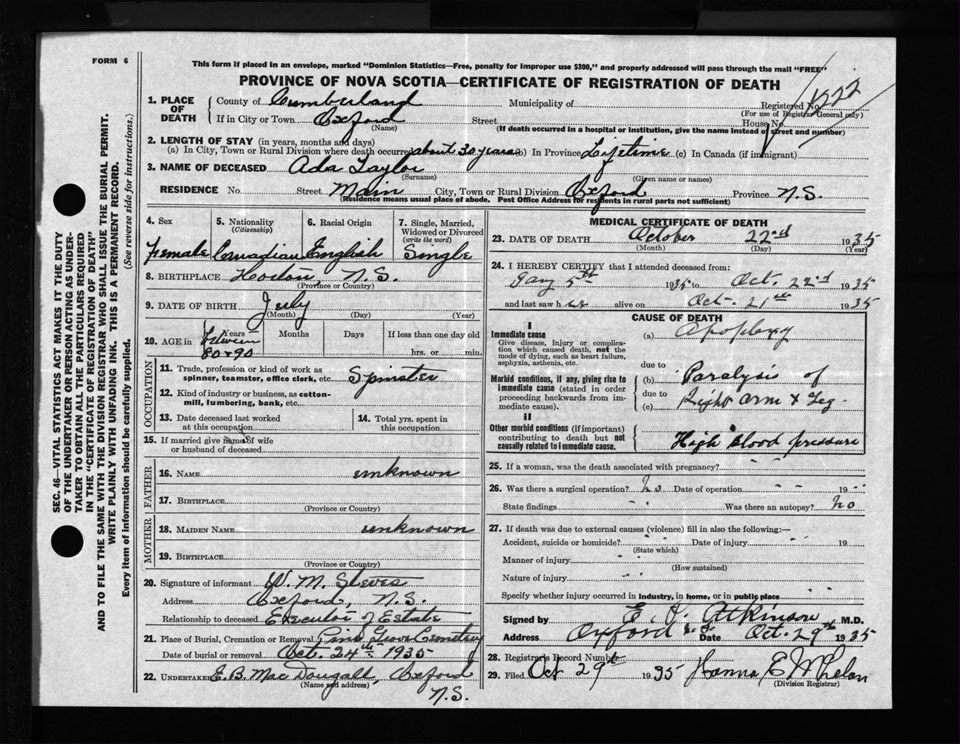 FORM 6
This form if placed in an envelope, marked "Dominion Statistics—Free, penalty for improper use $300," and properly addressed will pass through the mail "FREE"
PROVINCE OF NOVA SCOTIA—CERTIFICATE OF REGISTRATION OF DEATH
1222
1. PLACE OF DEATH
County of Cumberland Municipality of Registered No.
(For use of Registrar General only)
If in City or Town Oxford Street House No.
(Name) (If death occurred in a hospital or institution, give the name instead of street and number)
2. LENGTH OF STAY (in years, months and days)
(a) In City, Town or Rural Division where death occurred about 30 years (b) In Province Lifetime (c) In Canada (if immigrant)
3. NAME OF DECEASED Ada Taylor
(Surname) (Given name or names)
RESIDENCE No. Street Main City, Town or Rural Division Oxford Province N.S.
(Residence means usual place of abode. Post Office Address for residents in rural parts not sufficient)
4. Sex
female
5. Nationality
(Citizenship)
Canadian
6. Racial Origin
English
7. Single, Married, Widowed or Divorced
(write the word)
Single
8. BIRTHPLACE N.S.
(Province or Country)
9. DATE OF BIRTH July
(Month) (Day) (Year)
10. AGE in Years Months Days If less than one day old
between 80 & 90 hrs. or min.
OCCUPATION
11. Trade, profession or kind of work as spinner, teamster, office clerk, etc. Spinster
12. Kind of industry or business, as cotton-mill, lumbering, bank, etc.
13. Date deceased last worked at this occupation
14. Total yrs. spent in this occupation
15. If married give name of wife or husband of deceased
FATHER
16. NAME unknown
17. BIRTHPLACE
(Province or Country)
MOTHER
18. MAIDEN NAME unknown
19. BIRTHPLACE
(Province or Country)
20. Signature of informant W. M. Sleves
Address Oxford, N.S.
Relationship to deceased Executor of Estate
21. Place of Burial, Cremation or Removal Grove Cemetery
Date of burial or removal Oct. 24th 1935
22. UNDERTAKER E. B. MacDougall Oxford
(Name and address) N.S.
MEDICAL CERTIFICATE OF DEATH
23. DATE OF DEATH October 22nd 1935
(Month) (Day) (Year)
24. I HEREBY CERTIFY that I attended deceased from:
5th 1935 to Oct. 22nd 1935
and last saw her alive on Oct- 21st 1935
CAUSE OF DEATH
I
Immediate cause
Give disease, injury or complication which caused death, not the mode of dying, such as heart failure, asphyxia, asthenia, etc.
(a) Apoplexy
due to
Morbid conditions, if any, giving rise to immediate cause (stated in order proceeding backwards from immediate cause).
(b) Paralysis of
due to
(c) Right arm & Leg-
II
Other morbid conditions (if important) contributing to death but not causally related to immediate cause.
High blood pressure
25. If a woman, was the death associated with pregnancy?
26. Was there a surgical operation? no Date of operation 19
State findings Was there an autopsy? no
27. If death was due to external causes (violence) fill in also the following:—
Accident, suicide or homicide? Date of injury 19
(State which)
Manner of injury
(How sustained)
Nature of injury
Specify whether injury occurred in industry, in home, or in public place
Signed by E. Atkinson M.D.
Address Oxford N.S. Date Oct. 29th 1935
28. Registrar's Record Number
29. Filed Oct 29th 1935 Hanna E. Whelan
(Division Registrar)
SEC. 46—VITAL STATISTICS ACT MAKES IT THE DUTY
OF THE UNDERTAKER OR PERSON ACTING AS UNDER-
TAKER TO OBTAIN ALL THE PARTICULARS REQUIRED
IN THE "CERTIFICATE OF REGISTRATION OF DEATH"
AND TO FILE THE SAME WITH THE DIVISION REGISTRAR WHO SHALL ISSUE THE BURIAL PERMIT.
WRITE PLAINLY WITH UNFADING INK. THIS IS A PERMANENT RECORD.
Every item of information should be carefully supplied. (See reverse side for instructions.)